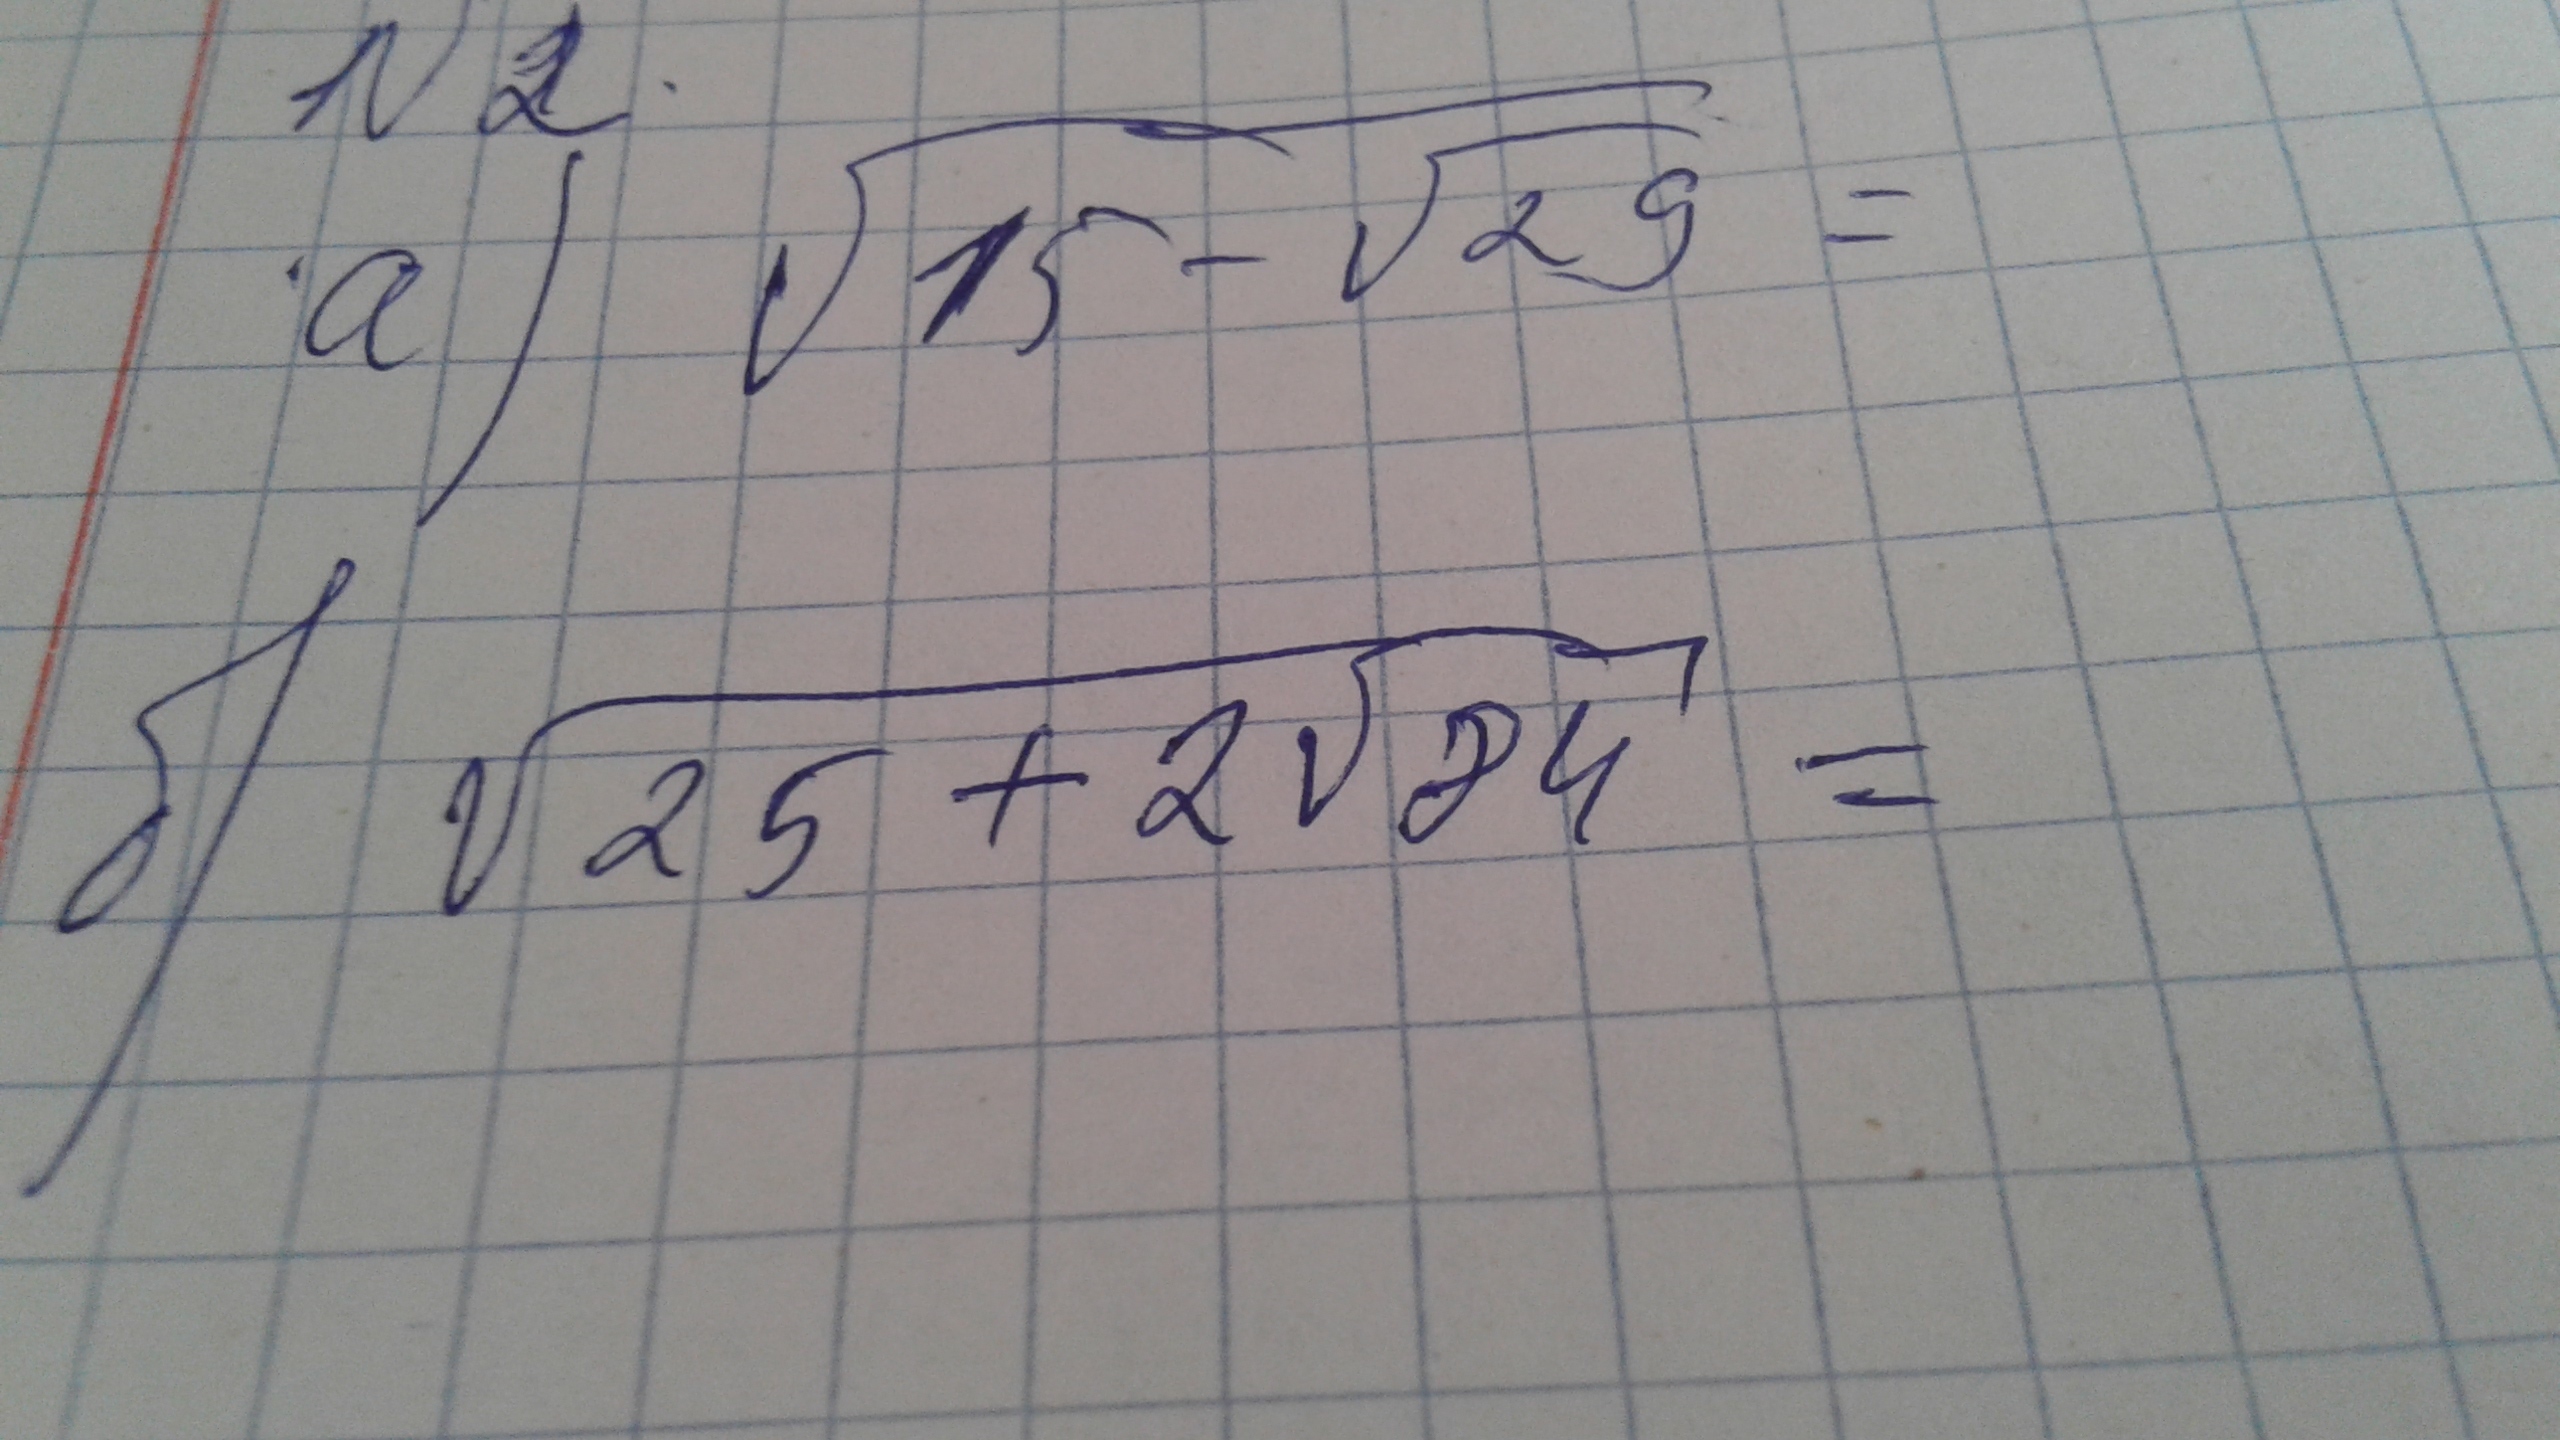 № 2.
а) √(15 - √29) =
б) √(25 + 2√84) =